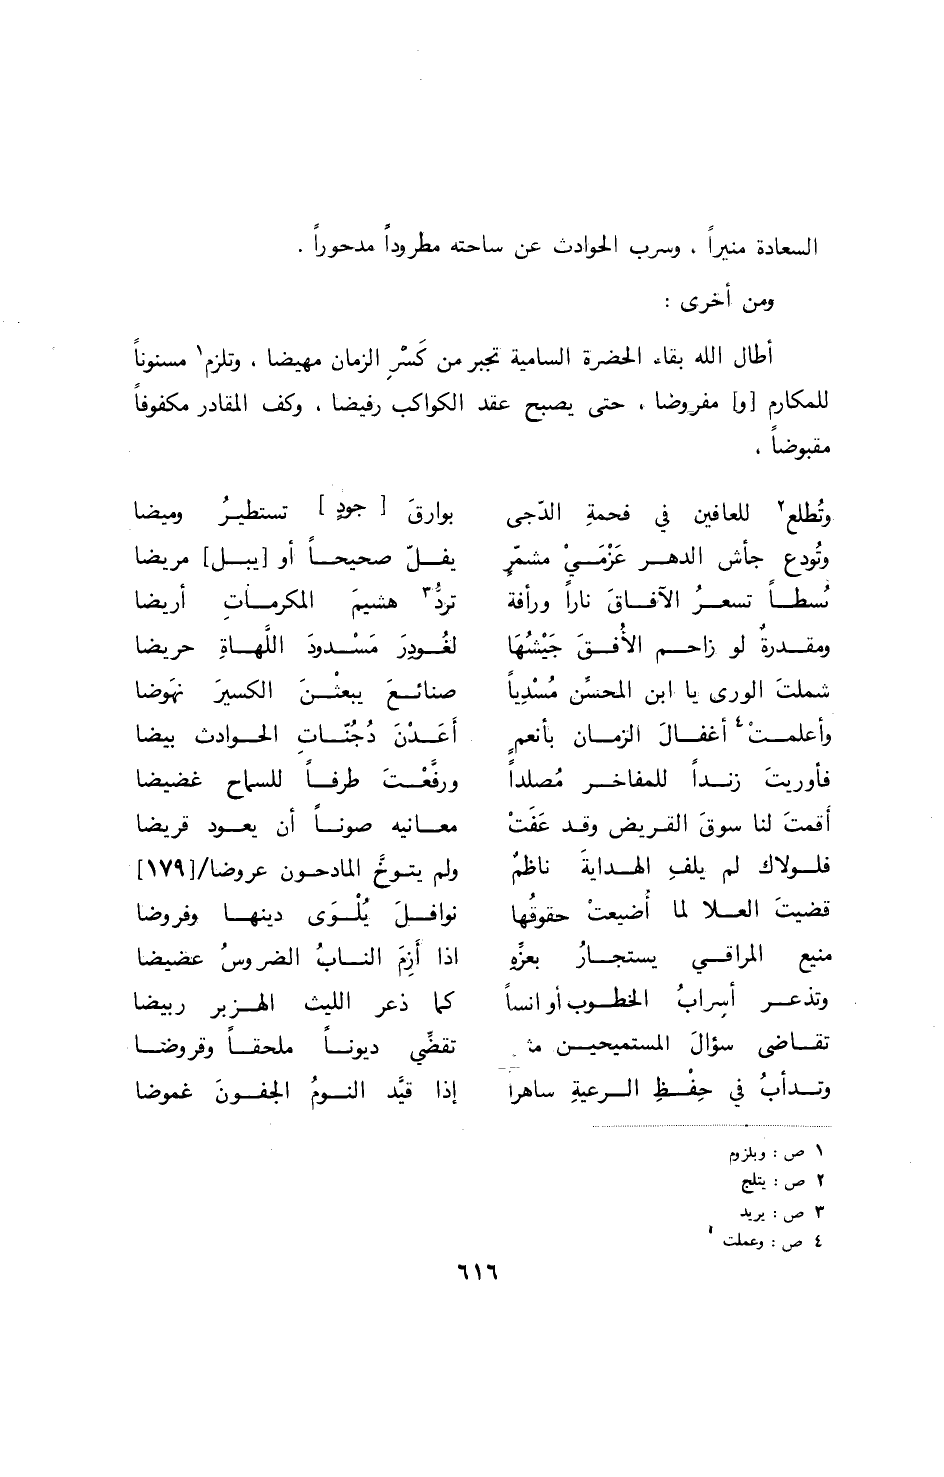 السعادة منيراً ، وسرب الحوادث عن ساحته مطروداً مدحوراً .
ومن أخرى :
أطال الله بقاء الحضرة السامية تجبر من كَسْرِ الزمان مهيضا ، وتلزم١ مسنوناً
للمكارم [و] مفروضا ، حتى يصبح عقد الكواكب رفيضا ، وكف المقادر مكفوفاً
مقبوضاً ،
وتُطلع٢ للعافين في فحمةِ الدّجى بوارقَ [ جودٍ ] تستطيرُ وميضا
وتُودع جأش الدهر عَزْمَيْ مشمّرٍ يفلّ صحيحاً أو [يبل] مريضا
سُطاً تسعرُ الآفاقَ ناراً ورأفة تردُّ٣ هشيمَ المكرماتِ أريضا
ومقدرةٌ لو زاحم الأُفقَ جَيْشُهَا لغُودِرَ مَسْدودَ اللَّهاةِ حريضا
شملتَ الورى يا ابن المحسَّن مُسْدِياً صنائعَ يبعثْنَ الكسيرَ نهَوضا
وأعلمتْ٤ أغفالَ الزمان بأنعمٍ أَعَدْنَ دُجُنّاتِ الحوادث بيضا
فأوريتَ زنداً للمفاخر مُصلداً ورفَّعْتَ طرفاً للسماح غضيضا
أقمتَ لنا سوقَ القريض وقد عَفَتْ معانيه صوناً أن يعود قريضا
فلولاك لم يلفِ الهدايةَ ناظمٌ ولم يتوخَّ المادحون عروضا/[١٧٩]
قضيتَ العلا لما أُضيعتْ حقوقُها نوافلَ يُلْوَى دينها وفروضا
منيع المراقي يستجارُ بعزِّهِ اذا أَزِمَ النابُ الضروسُ عضيضا
وتذعر أسرابُ الخطوب أوانساً كما ذعر الليث الهزبر ربيضا
تقاضى سؤالَ المستميحين تقضِّي ديوناً ملحقاً وقروضا
وتدأبُ في حِفْظِ الرعيةِ ساهراً إذا قيَّد النومُ الجفونَ غموضا
١ ص : وبلزوم
٢ ص : يتلج
٣ ص : يريد
٤ ص : وعملت
٦١٦